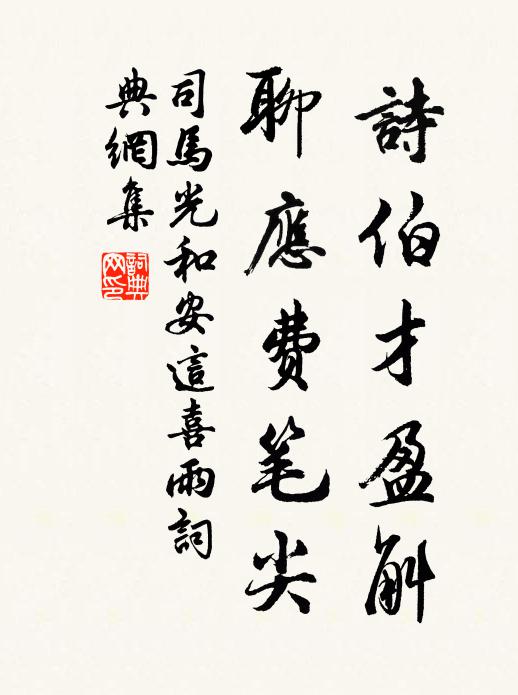 詩伯才盈斛
聊應費笔尖
司馬光和安這喜雨詞
典網集
詞典网印